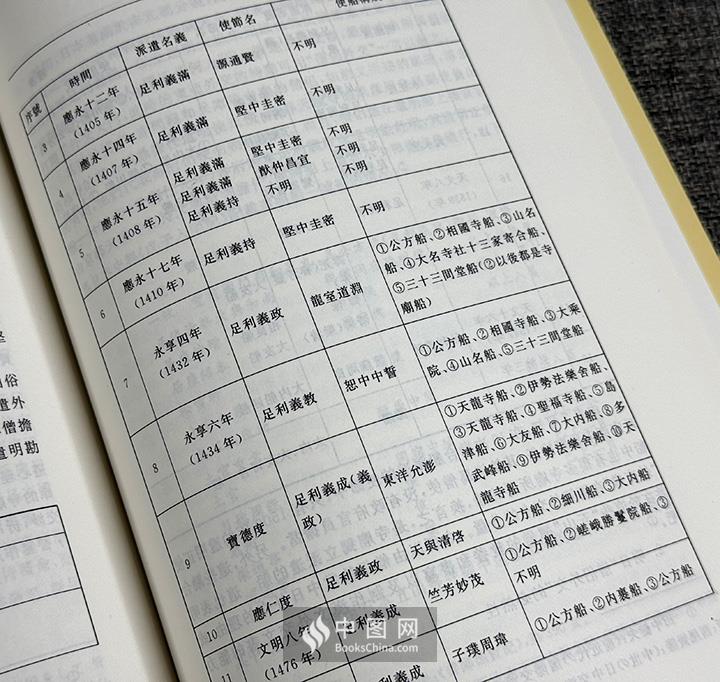 序號 時間 派遣名義 使節名
3 應永十二年 足利義滿 源通賢 不明
(1405年)
4 應永十四年 足利義滿 堅中圭密 不明
(1407年)
5 應永十五年 足利義滿 堅中圭密 不明
(1408年) 足利義滿 猷仲昌宣 不明
足利義持 不明 不明
6 應永十七年 足利義持 堅中圭密 不明
(1410年)
7 永享四年 足利義政 龍室道淵 ①公方船、②相國寺船、③山名
(1432年) 船、④大名寺社十三家寄合船、
⑤三十三間堂船(②以後都是寺
廟船)
8 永享六年 足利義教 恕中中誓 ①公方船、②相國寺船、③大乘
(1434年) 院、④山名船、⑤三十三間堂船
9 寶德度 足利義成(義 東洋允澎 ①天龍寺船、②伊勢法樂舍船、
政) ③天龍寺船、④聖福寺船、⑤島
津船、⑥大友船、⑦大內船、⑧多
武峰船、⑨伊勢法樂舍船、⑩天
龍寺船
10 應仁度 足利義政 天與清啓 ①公方船、②細川船、③大內船
11 文明八年 足利義成 竺芳妙茂 ①公方船、②嵯峨勝鬘院船、③
(1476年) 不明
足利義成 子璞周瑋 ①公方船、②內裏船、③公方船
俗
遣外
僧擔
遣明勘
中图网
BooksChina.com